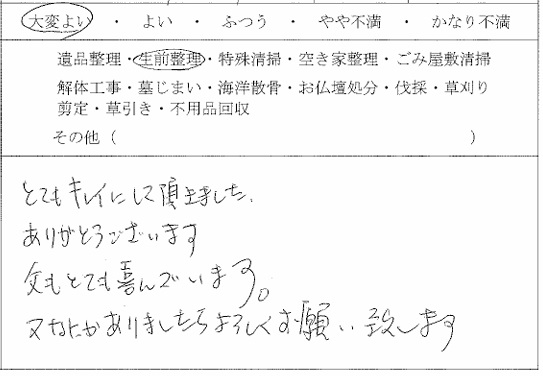 大変よい ・ よい ・ ふつう ・ やや不満 ・ かなり不満
遺品整理・生前整理・特殊清掃・空き家整理・ごみ屋敷清掃
解体工事・墓じまい・海洋散骨・お仏壇処分・伐採・草刈り
剪定・草引き・不用品回収
その他（　　　　　　　　　　）
とてもキレイにして頂きました。
ありがとうございます
父もとても喜んでいます。
又なにかありましたらよろしくお願い致します